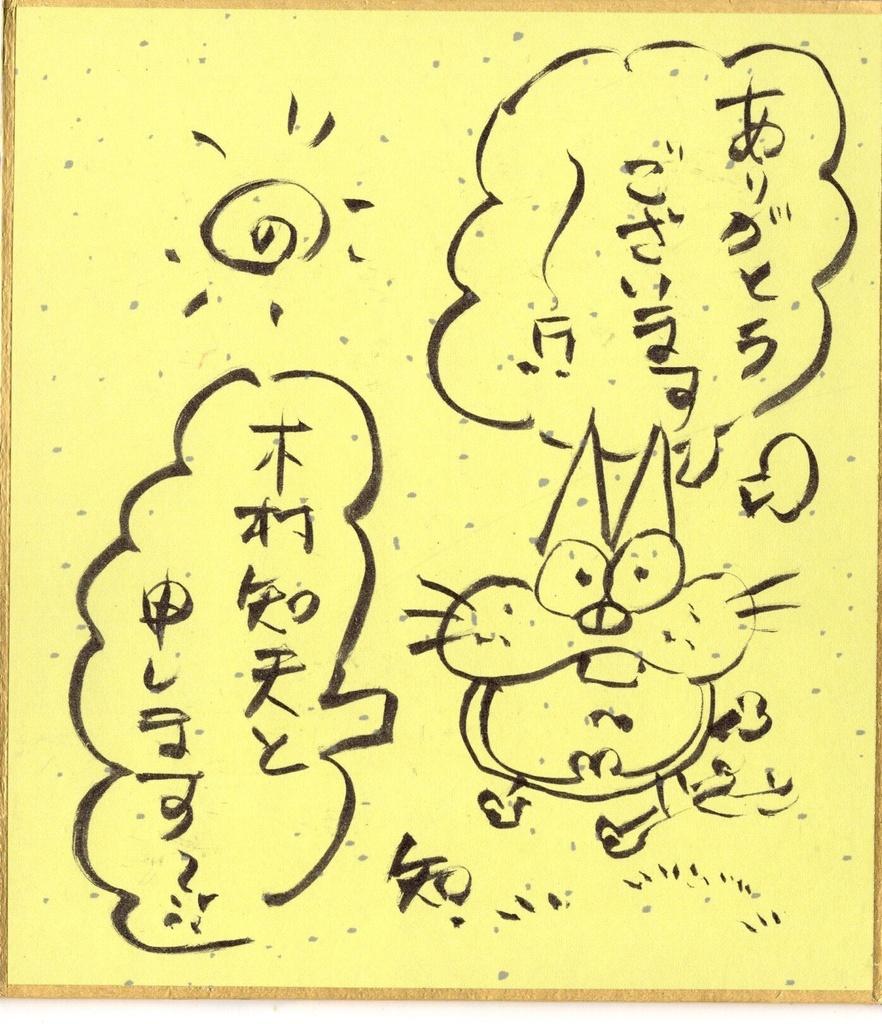 ありがとう
ございます
〜!!
木村知夫と
申します〜!!
知